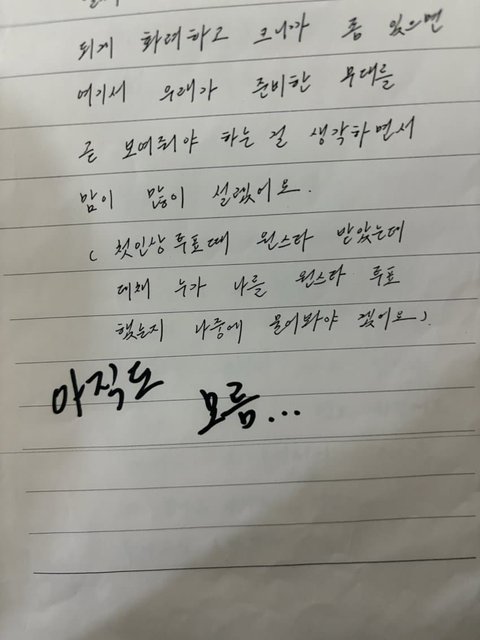 되게 화려하고 크니까 좀 있으면
여기서 우래가 준비한 무대를
곧 보여줘야 하는 걸 생각하면서
맘이 많이 설렜어요.
( 첫인상 투표 때 원스타 받았는데
대체 누가 나를 원스타 투표
했는지 나중에 물어봐야 겠어요)
아직도
모름...